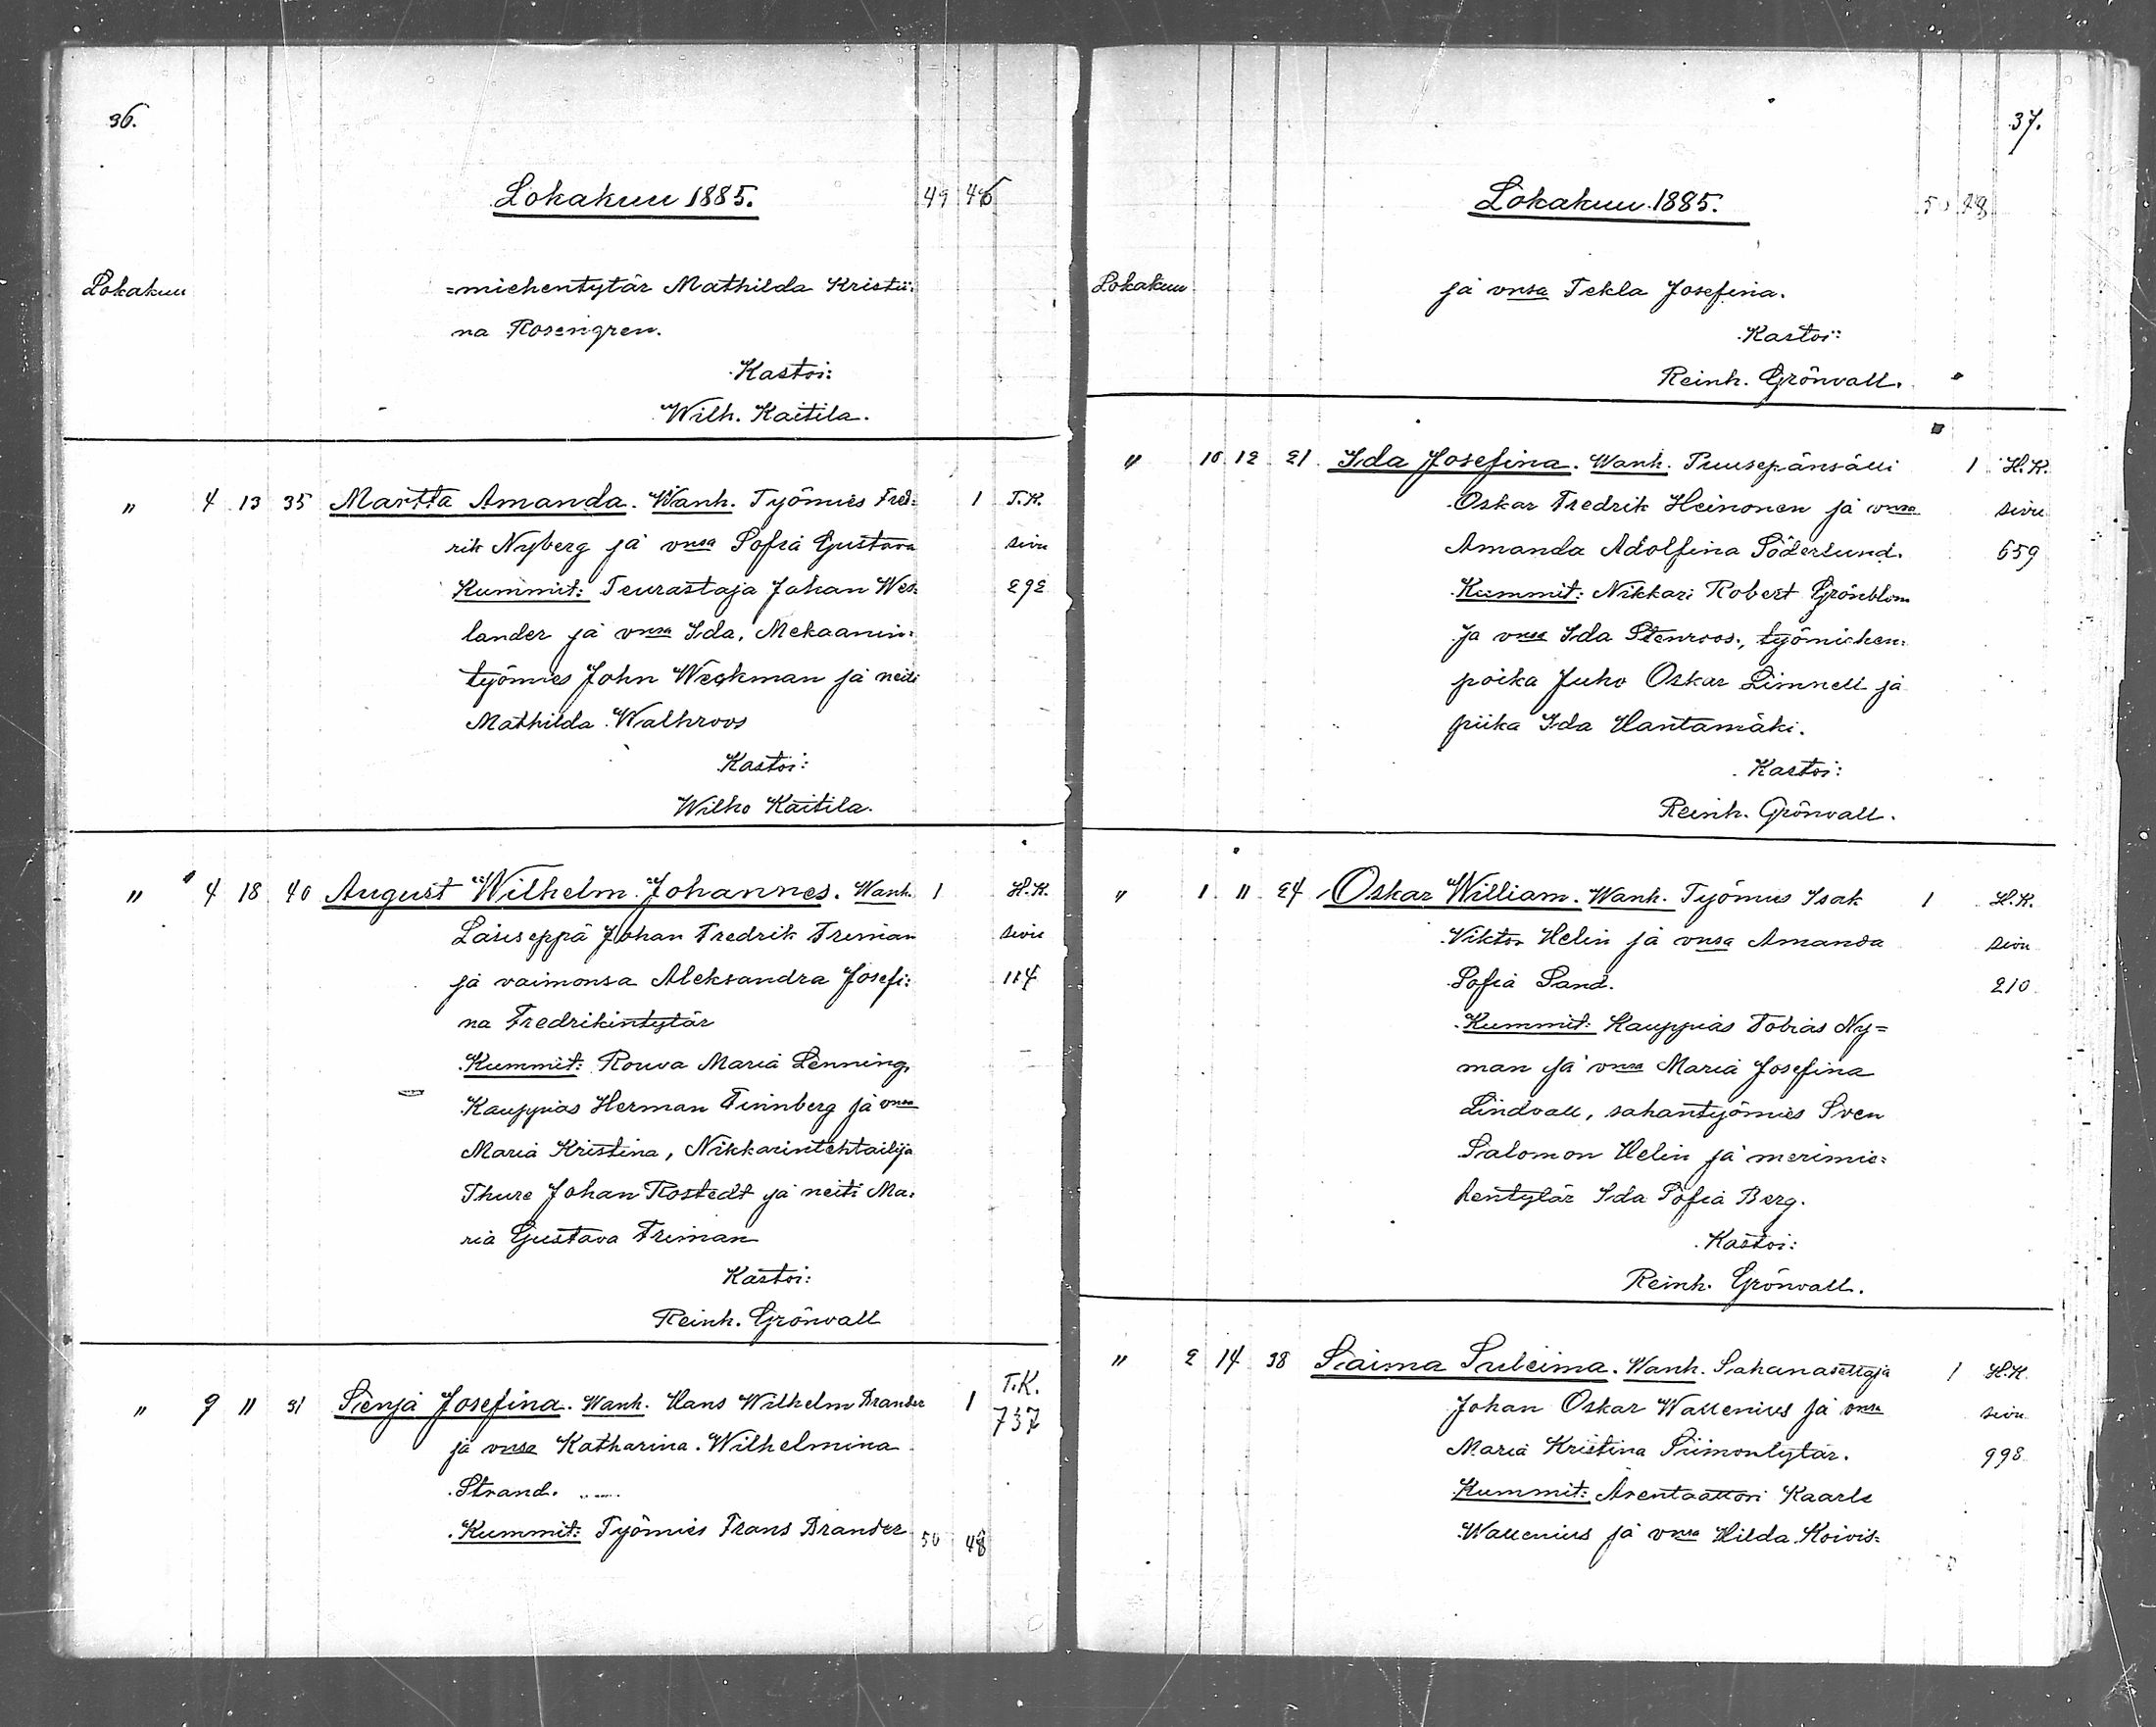 36.
Lokakuu 1885. 49 46
Lokakuu =miehentytär Mathilda Kristii=
na Rosengren.
Kastoi:
Wilh. Kaitila.
" 4 13 35 Martta Amanda. Wanh. Työmies Fred= 1 T.K.
rik Nyberg ja vmsa Sofia Gustava sivu
Kummit: Teurastaja Johan Wes= 292
lander ja vmsa Ida, Mekaanin=
työmies John Weckman ja neiti
Mathilda Walhroos
Kastoi:
Wilho Kaitila.
" 4 18 40 August Wilhelm Johannes. Wanh. 1 H.K.
Lasiseppä Johan Fredrik Friman sivu
ja vaimonsa Aleksandra Josefi= 114
na Fredrikintytär
Kummit: Rouva Maria Lenning,
Kauppias Herman Finnberg ja vmsa
Maria Kristina, Nikkarintehtailija
Thure Johan Rostedt ja neiti Ma=
ria Gustava Friman
Kastoi:
Reinh. Grönvall
" 9 11 31 Senja Josefina. Wanh. Hans Wilhelm Brander 1 T.K.
737
ja vmsa Katharina Wilhelmina
Strand.
Kummit: Työmies Frans Brander 50 48
37.
Lokakuu 1885. 50 48
Lokakuu ja vmsa Tekla Josefina.
Kastoi:
Reinh. Grönvall.
" 10 12 21 Ida Josefina. Wanh. Puusepänsälli 1 H.K.
Oskar Fredrik Heinonen ja vmsa sivu
Amanda Adolfina Söderlund. 659
Kummit: Nikkari Robert Grönblom
ja vmsa Ida Stenroos, työmiehen=
poika Juho Oskar Limnell ja
piika Ida Hantamäki.
Kastoi:
Reinh. Grönvall.
" 1 11 24 Oskar William. Wanh. Työmies Isak 1 H.K.
Viktor Helin ja vmsa Amanda sivu
Sofia Sand. 210
Kummit: Kauppias Tobias Ny=
man ja vmsa Maria Josefina
Lindvall, sahantyömies Sven
Salomon Helin ja merimie=
hentytär Ida Sofia Berg.
Kastoi:
Reinh. Grönvall.
" 2 14 38 Saima Suleima. Wanh. Sahanasettaja 1 H.K.
Johan Oskar Wallenius ja vmsa sivu
Maria Kristina Siimontytär. 998
Kummit: Arentaattori Kaarle
Wallenius ja vmsa Hilda Koivis=